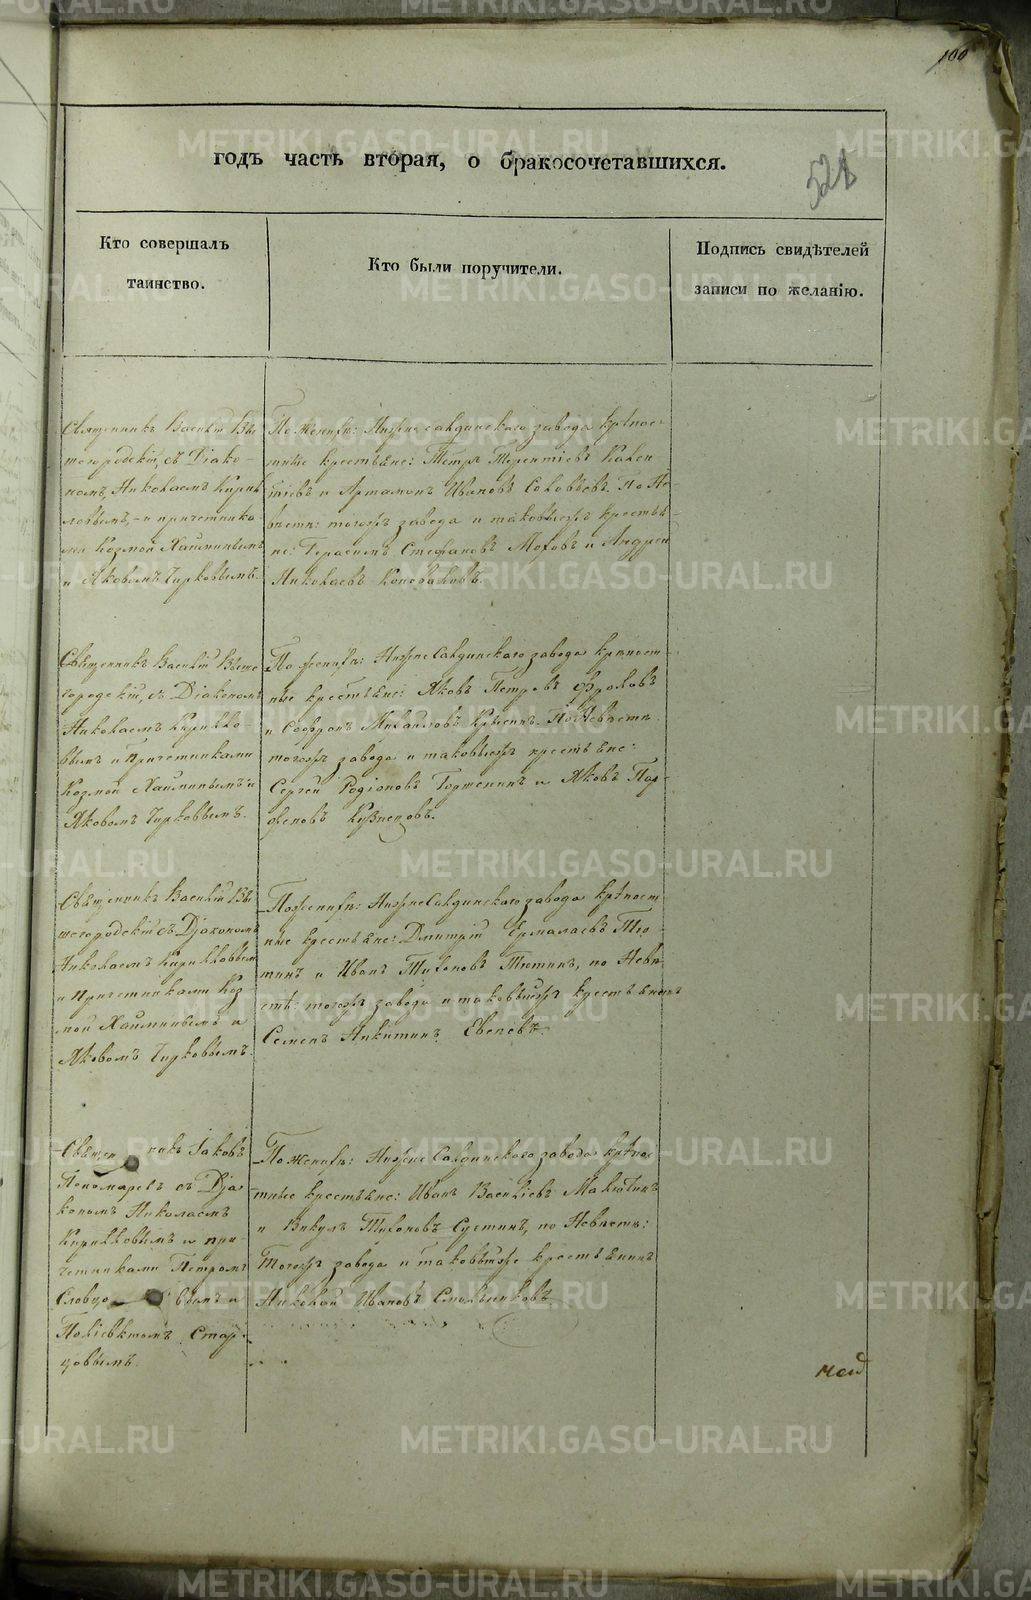 100
годъ часть вторая, о бракосочетавшихся.
521
Кто совершалъ
таинство.
Кто были поручители.
Подпись свидѣтелей
записи по желанію.
Священникъ Василій Вы-
шегородскій, съ Діако-
номъ, Николаемъ Кирил-
ловымъ, и причетника-
ми Козмой Хлыминымъ
и Яковомъ Чирковымъ.
По Женихѣ: Нижнесалдинскаго завода крѣпос-
тные крестьяне: Петръ Терентіевъ
и Артамонъ Ивановъ Соловьевъ. По Не-
вѣсты: тогожъ завода и таковыежъ крестья-
не: Герасимъ Стефановъ Моховъ и Андрей
Николаевъ Коноваловъ.
Священникъ Василій Выше-
городскій, съ Діакономъ
Николаемъ Кирилло-
вымъ и Причетниками
Козмой Хлыминымъ и
Яковомъ Чирковымъ.
По женихѣ: Нижнесалдинскаго завода крѣпост-
ные крестьяне: Яковъ Петровъ Фроловъ
и Софронъ Михайловъ По Невѣстѣ
тогожъ завода и таковыежъ крестьяне:
Сергей Родіоновъ и Яковъ Пар-
феновъ Кузнецовъ.
Священникъ Василій Вы-
шегородскій съ Діакономъ
Николаемъ Кирилловым
и Причетниками Коз-
мой Хлыминымъ и
Яковомъ Чирковымъ.
По женихѣ: Нижнесалдинскаго завода крѣпост
ные крестьяне: Дмитрій Ермолаевъ Тю-
тинъ и Иванъ Тихоновъ Тютинъ, по Невѣ-
стѣ: тогожъ завода и таковыйжъ крестьянинъ
Семенъ Никитинъ
Священникъ Іаковъ
Пономаревъ съ Діа-
кономъ Николаемъ
Кирилловымъ и при-
четниками Петромъ
Словцовымъ и
Поліевктомъ Стар-
цовымъ.
По Женихѣ: Нижнесалдинскаго завода крѣпос-
тные крестьяне: Иванъ Василіевъ
и Викулъ Тихоновъ Сустинъ, по Невѣстѣ:
Тогожъ завода и таковыйже крестьянинъ
Николай Ивановъ
METRIKI.GASO-URAL.RU